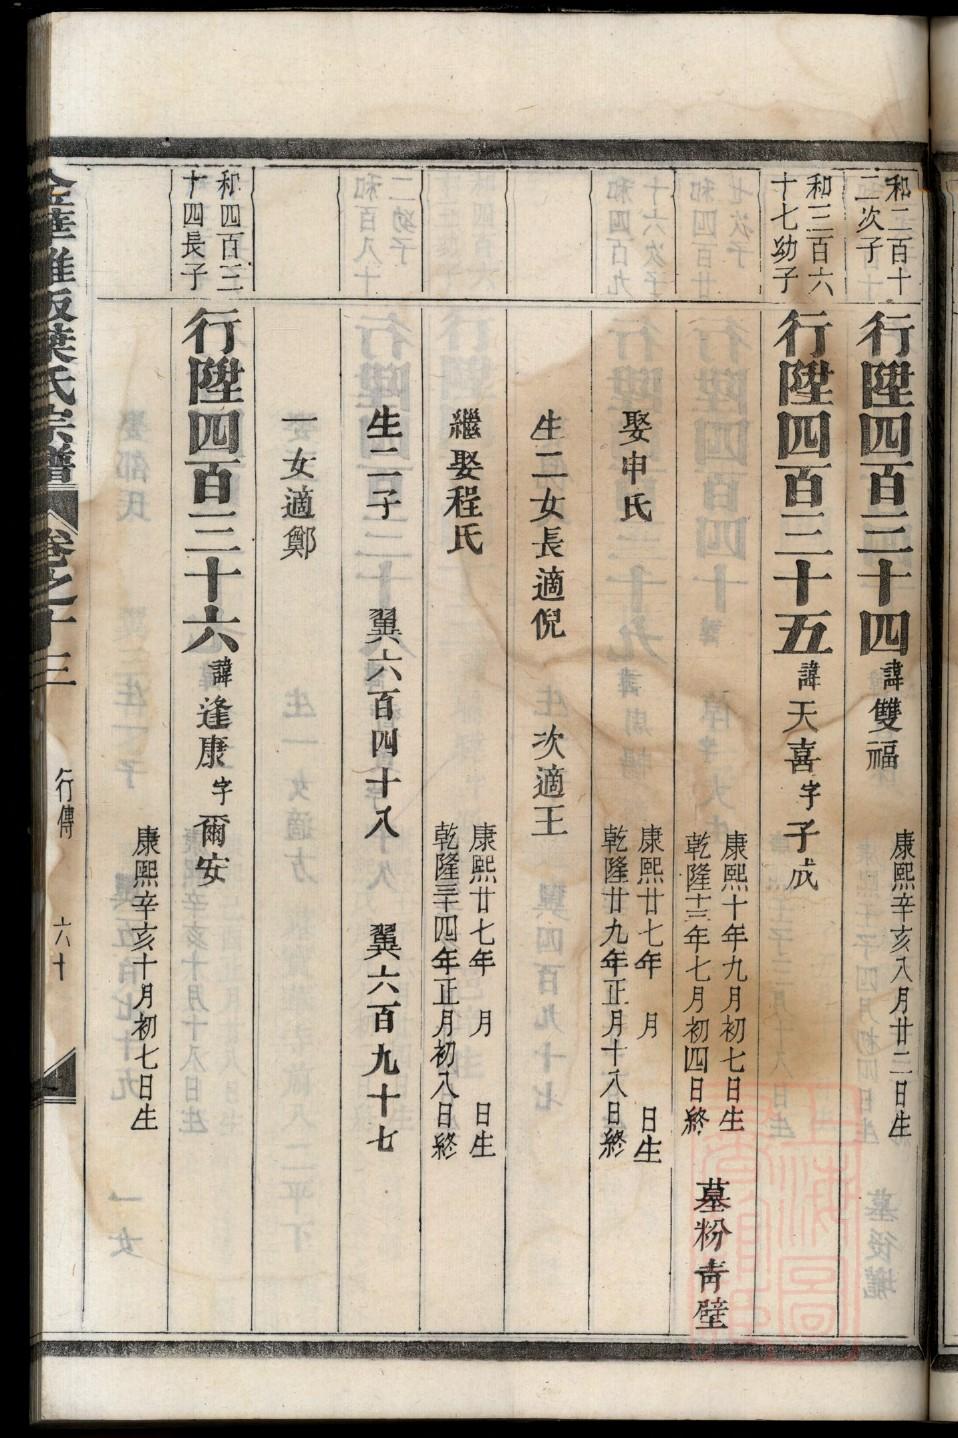 和三百十
二次子
行陞四百三十四諱雙福
康熙辛亥八月廿二日生
和三百六
十七幼子
行陞四百三十五諱天喜字子成
康熙十年九月初七日生
乾隆十三年七月初四日終
墓粉青壁
娶申氏
康熙廿七年 月 日生
乾隆廿九年正月十八日終
生二女長適倪 次適王
繼娶程氏
康熙廿七年 月 日生
乾隆三十四年正月初八日終
生二子 翼六百四十八 翼六百九十七
一女適鄭
和四百三
十四長子
行陞四百三十六諱逢康字爾安
康熙辛亥十月初七日生
葉氏宗譜 卷之十三 行傳 六十